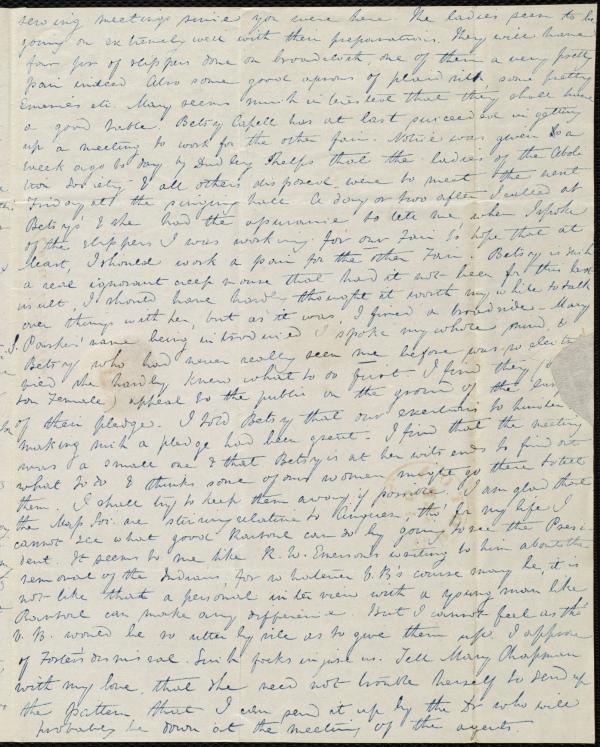 sewing meetings since you were here. The ladies seem to be
going on extremely well with their preparations. They will have
four prs of slippers done on broadcloth, one of them a very pretty
pair indeed. Also some good aprons of plaid silk some pretty
Emeries etc. Mary seems much interested that they shall have
a good table. Betsey Capell has at last succeeded in getting
up a meeting to work for the other fair. Notice was given to a
week ago to day by Dudley Phelps that the ladies of the Aboli
tion Society & all others disposed, were to meet the next
Friday at the singing hall. A day or two after I called at
Betsy's & she had the assurance to tell me, when I spoke
of the slippers I was working for our Fair to hope that at
least, I should work a pair for the other Fair. Betsey is such
a real ignorant creep mouse that had it not been for this last
insult, I should have hardly thought it worth my while to talk
over things with her, but as it was, I fired a broadside - Mary
S. Parker's name being introduced I spoke my whole mind, to
Betsey who had never really seen me before was so electri
fied she hardly knew what to do first. I find they (
ton Female) appeal to the public on the ground of the
of their pledge. I told Betsey that our exertions to hinder
making such a pledge had been great. I find that the meeting
was a small one & that Betsey is at her wits ends to find out
what to do & thinks some of our women might go there to tell
them. I shall try to keep them away if possible. I am glad that
the Mass Soc. are stirring relative to Anguera, tho' for my life I
cannot see what good Rantoul can do by going to see the Presi-
dent. It seems to me like R. W. Emersons writing to him about the
removal of the Indians, for whatever V. B's course may be, it is
not like that a personal interview with a young man like
Rantoul can make any difference. But I cannot feel as tho'
V. B. would be so utterly vile as to give them up. I approve
of Foster's dismissal. Such folks injure us. Tell Mary Chapman
with my love, that she need not trouble herself to send up
the pattern that I can send it up by the Dr who will
probably be down at the meeting of the agents.